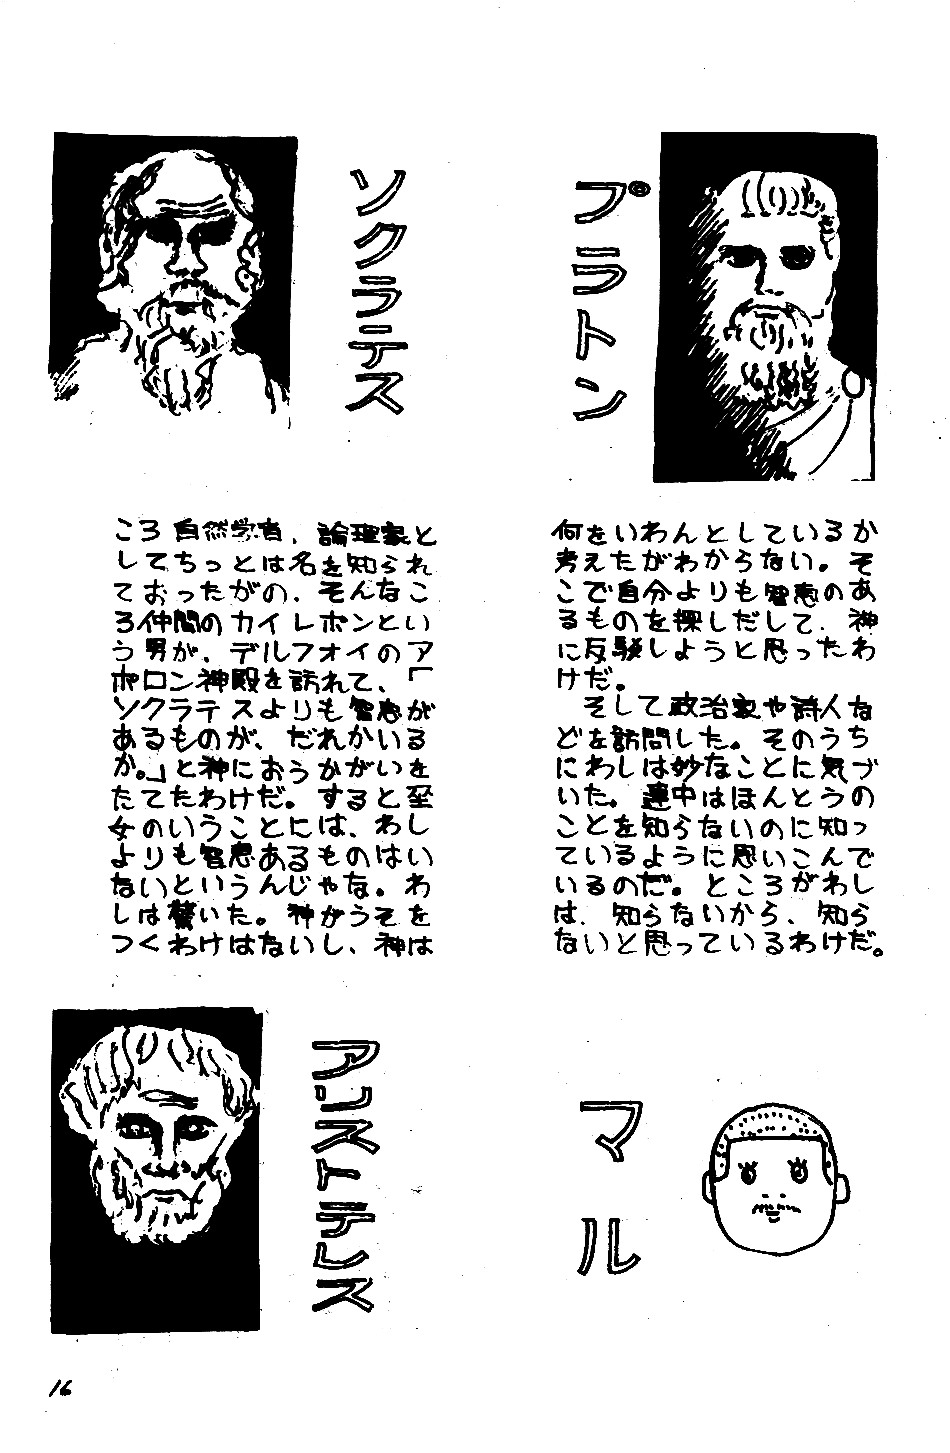 ソクラテス
プラトン
ころ自然学者、論理家と
してちっとは名を知られ
ておったがの、そんなこ
ろ仲間のカイレポンとい
う男が、デルフォイのア
ポロン神殿を訪れて、「
ソクラテスよりも智恵が
あるものが、だれかいる
か。」と神におうかがいを
たてたわけだ。すると巫
女のいうことには、わし
よりも智恵あるものはい
ないというんじゃな。わ
しは驚いた。神がうそを
つくわけはないし、神は
何をいわんとしているか
考えたがわからない。そ
こで自分よりも智恵のあ
るものを探しだして、神
に反駁しようと思ったわ
けだ。
そして政治家や詩人な
どを訪問した。そのうち
にわしは妙なことに気づ
いた。連中はほんとうの
ことを知らないのに知っ
ているように思いこんで
いるのだ。ところがわし
は、知らないから、知ら
ないと思っているわけだ。
アリストテレス
マル
16